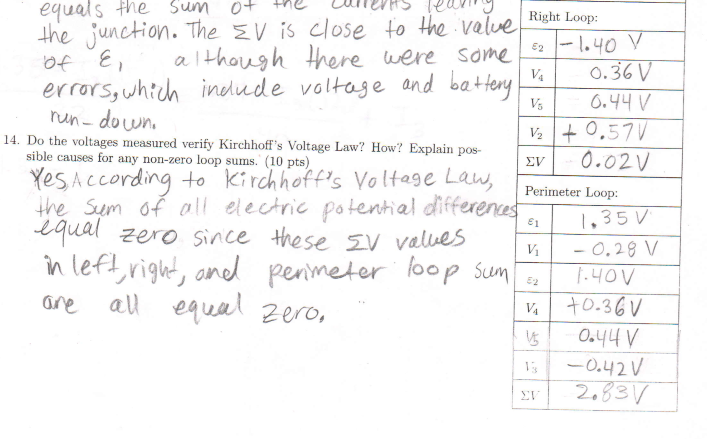 equals the sum of the currents leaving
the junction. The ΣV is close to the value
of ε, although there were some
errors, which include voltage and battery
run-down.
14. Do the voltages measured verify Kirchhoff's Voltage Law? How? Explain pos-
sible causes for any non-zero loop sums. (10 pts)
Yes, According to Kirchhoff's Voltage Law,
the sum of all electric potential differences
equal zero since these ΣV values
in left, right, and perimeter loop sum
are all equal zero.
Right Loop:
ε2 -1.40 V
V4 0.36 V
V5 0.44 V
V2 +0.57V
ΣV 0.02V
Perimeter Loop:
ε1 1.35 V
V1 -0.28 V
ε2 1.40V
V4 +0.36V
V5 0.44 V
V3 -0.42V
ΣV 2.83V